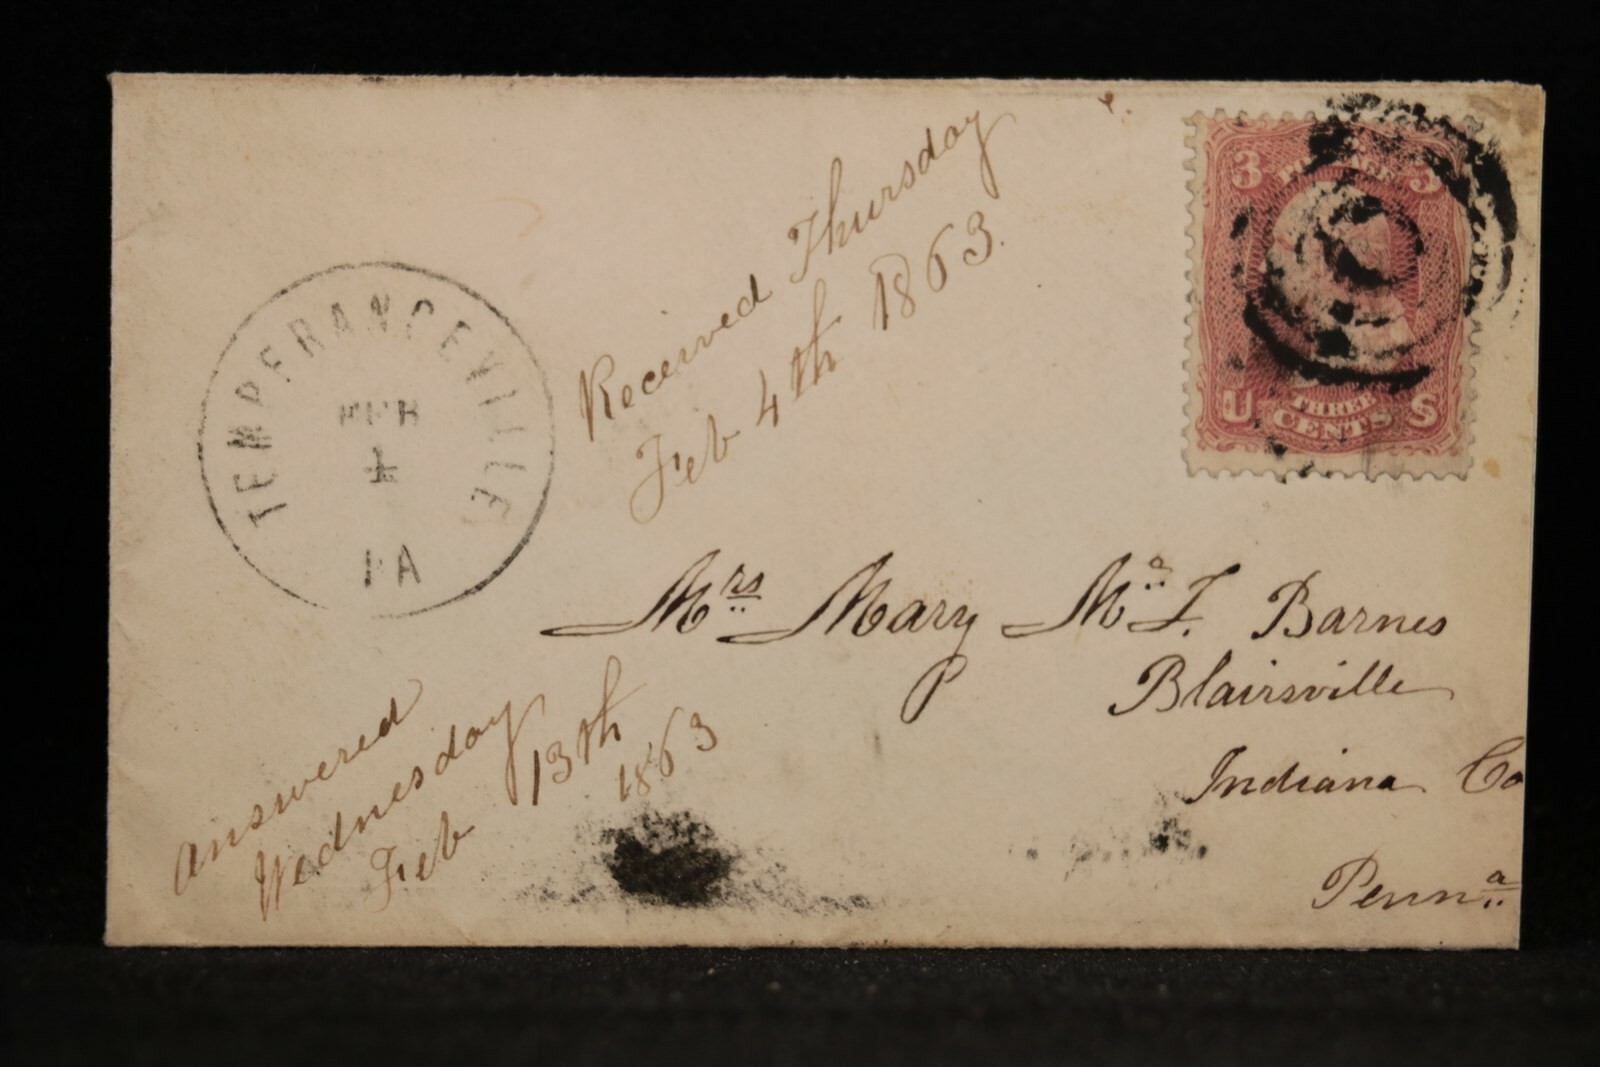 TEMPERANCEVILLE
FEB
1
PA
Received Thursday
Feb 4th 1863.
3 3
U THREE S
CENTS
Mrs Mary Ma. T. Barnes
Blairsville
Indiana Co
Penna
Answered
Wednesday
Feb 13th
1863